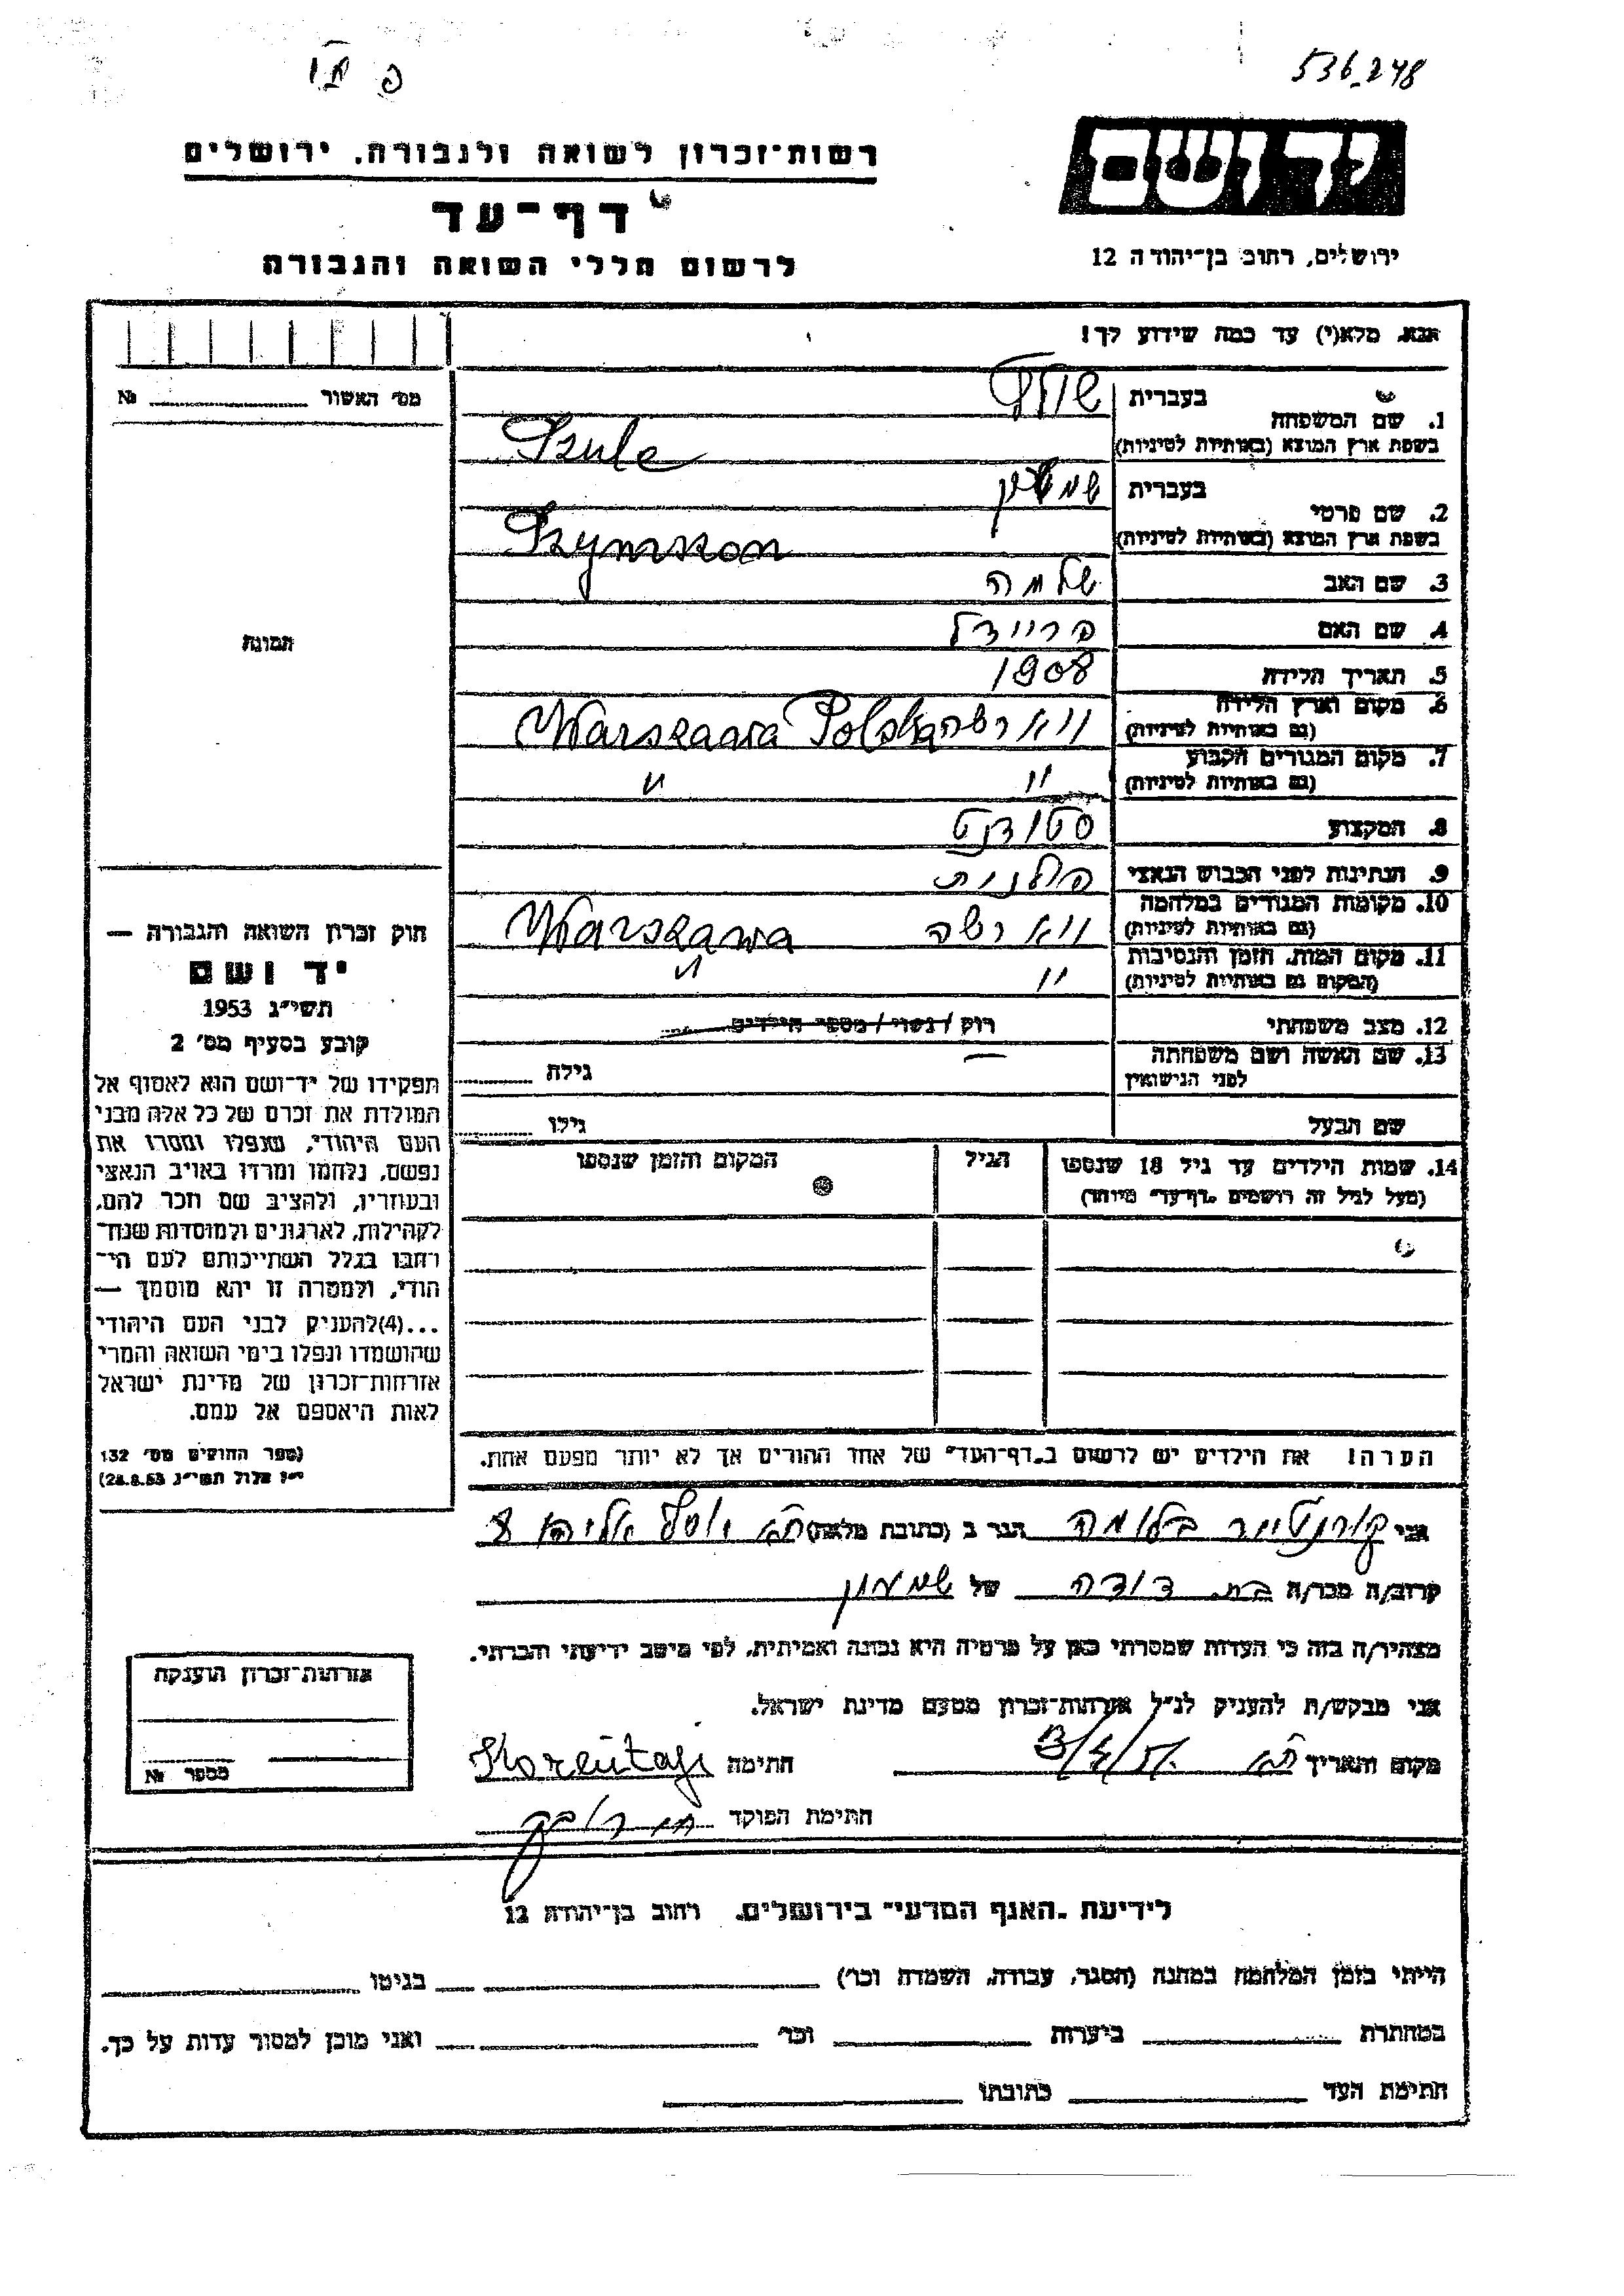 536248
יד ושם
רשות-זכרון לשואה ולגבורה, ירושלים
דף-עד
לרשום חללי השואה והגבורה
ירושלים, רחוב בן-יהודה 12
אנא, מלא(י) עד כמה שידוע לך!
מס׳ האשור №
1. שם המשפחה
בעברית שולץ
בשפת ארץ המוצא (באותיות לטיניות) Szulc
2. שם פרטי
בעברית
בשפת ארץ המוצא (באותיות לטיניות) Szymszon
3. שם האב שלמה
4. שם האם פריידל
5. תאריך הלידה 1908
6. מקום וארץ הלידה
(גם באותיות לטיניות) ווארשה Warszawa Polska
7. מקום המגורים הקבוע
(גם באותיות לטיניות) " "
8. המקצוע סטודנט
9. הנתינות לפני הכבוש הנאצי פולנית
10. מקומות המגורים במלחמה
(גם באותיות לטיניות) ווארשה Warszawa
11. מקום המות, הזמן והנסיבות
(המקום גם באותיות לטיניות) " "
12. מצב משפחתי רווק / נשוי / מספר הילדים
13. שם האשה ושם משפחתה
לפני הנישואין גילה
שם הבעל גילו
14. שמות הילדים עד גיל 18 שנספו
(מעל לגיל זה רושמים "דף-עד" מיוחד)
הגיל
המקום והזמן שנספו
הערה! את הילדים יש לרשום ב"דף-העד" של אחד ההורים אך לא יותר מפעם אחת.
תמונה
חוק זכרון השואה והגבורה —
יד ושם
תשי״ג 1953
קובע בסעיף מס׳ 2
תפקידו של יד-ושם הוא לאסוף אל
המולדת את זכרם של כל אלה מבני
העם היהודי, שנפלו ומסרו את
נפשם, נלחמו ומרדו באויב הנאצי
ובעוזריו, ולהציב שם וזכר להם,
לקהילות, לארגונים ולמוסדות שנח-
רבו בגלל השתייכותם לעם הי-
הודי, ולמטרה זו יהא מוסמך —
...(4)להעניק לבני העם היהודי
שהושמדו ונפלו בימי השואה והמרי
אזרחות-זכרון של מדינת ישראל
לאות היאספם אל עמם.
(ספר החוקים מס׳ 132
י״ז אלול תשי״ג 28.8.53)
אני בלומה הגר ב (כתובת מלאה) ת״א יוסף אליהו 8
קרוב/ה מכר/ה בת דודה של שמשון
מצהיר/ה בזה כי העדות שמסרתי כאן על פרטיה היא נכונה ואמיתית, לפי מיטב ידיעתי והכרתי.
אני מבקש/ת להעניק לנ״ל אזרחות-זכרון מטעם מדינת ישראל.
מקום ותאריך ת״א חתימה
חתימת הפוקד
אזרחות-זכרון הוענקה
מספר №
לידיעת "האגף המדעי" בירושלים, רחוב בן-יהודה 12
הייתי בזמן המלחמה במחנה (הסגר, עבודה, השמדה וכו׳) בגיטו
במחתרת ביערות וכו׳ ואני מוכן למסור עדות על כך.
חתימת העד כתובתו